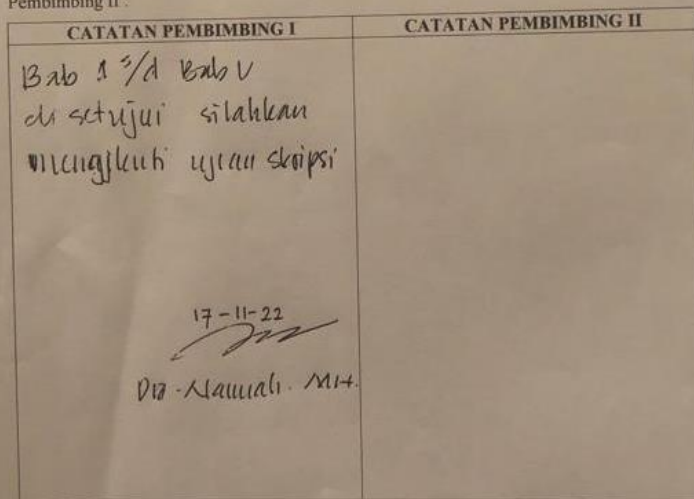 Pembimbing II :
CATATAN PEMBIMBING I
CATATAN PEMBIMBING II
Bab 1 s/d Bab V
di setujui silahkan
mengikuti ujian skripsi
17-11-22
MH.